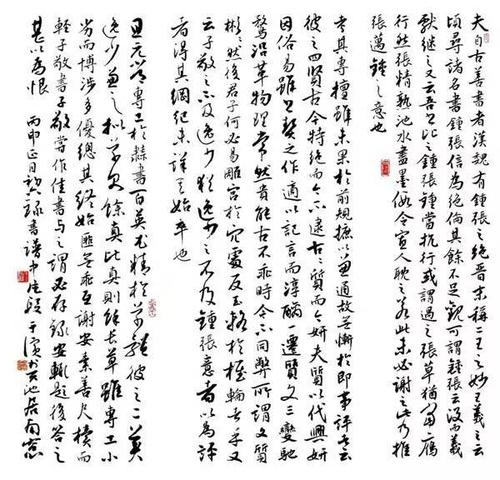 夫自古善書者漢魏有鍾張之絕晉末稱二王之妙王羲之云
頃尋諸名書鍾張信為絕倫其餘不足觀可謂鍾張云沒而羲
獻繼之又云吾書比之鍾張鍾當抗行或謂過之張草猶當雁
行然張精熟池水盡墨假令寡人耽之若此未必謝之此乃推
張邁鍾之意也
考其專擅雖未果於前規摭以兼通故無慚於即事評者云
彼之四賢古今特絕而今不逮古古質而今妍夫質以代興妍
因俗易雖書契之作適以記言而淳醨一遷質文三變馳
騖沿革物理常然貴能古不乖時今不同弊所謂文質
彬彬然後君子何必易雕宮於穴處反玉輅於椎輪者乎又
云子敬之不及逸少猶逸少之不及鍾張意者以為評
者得其綱紀未詳其始卒也
且元常專工於隸書百英尤精於草體彼之二美
逸少兼之擬草則餘真比真則長草雖專工小
劣而博涉多優總其終始匪無乖互謝安素善尺牘而
輕子敬書子敬嘗作佳書與之謂必存錄安輒題後答之
甚以為恨 丙申正月 錄書譜中片段